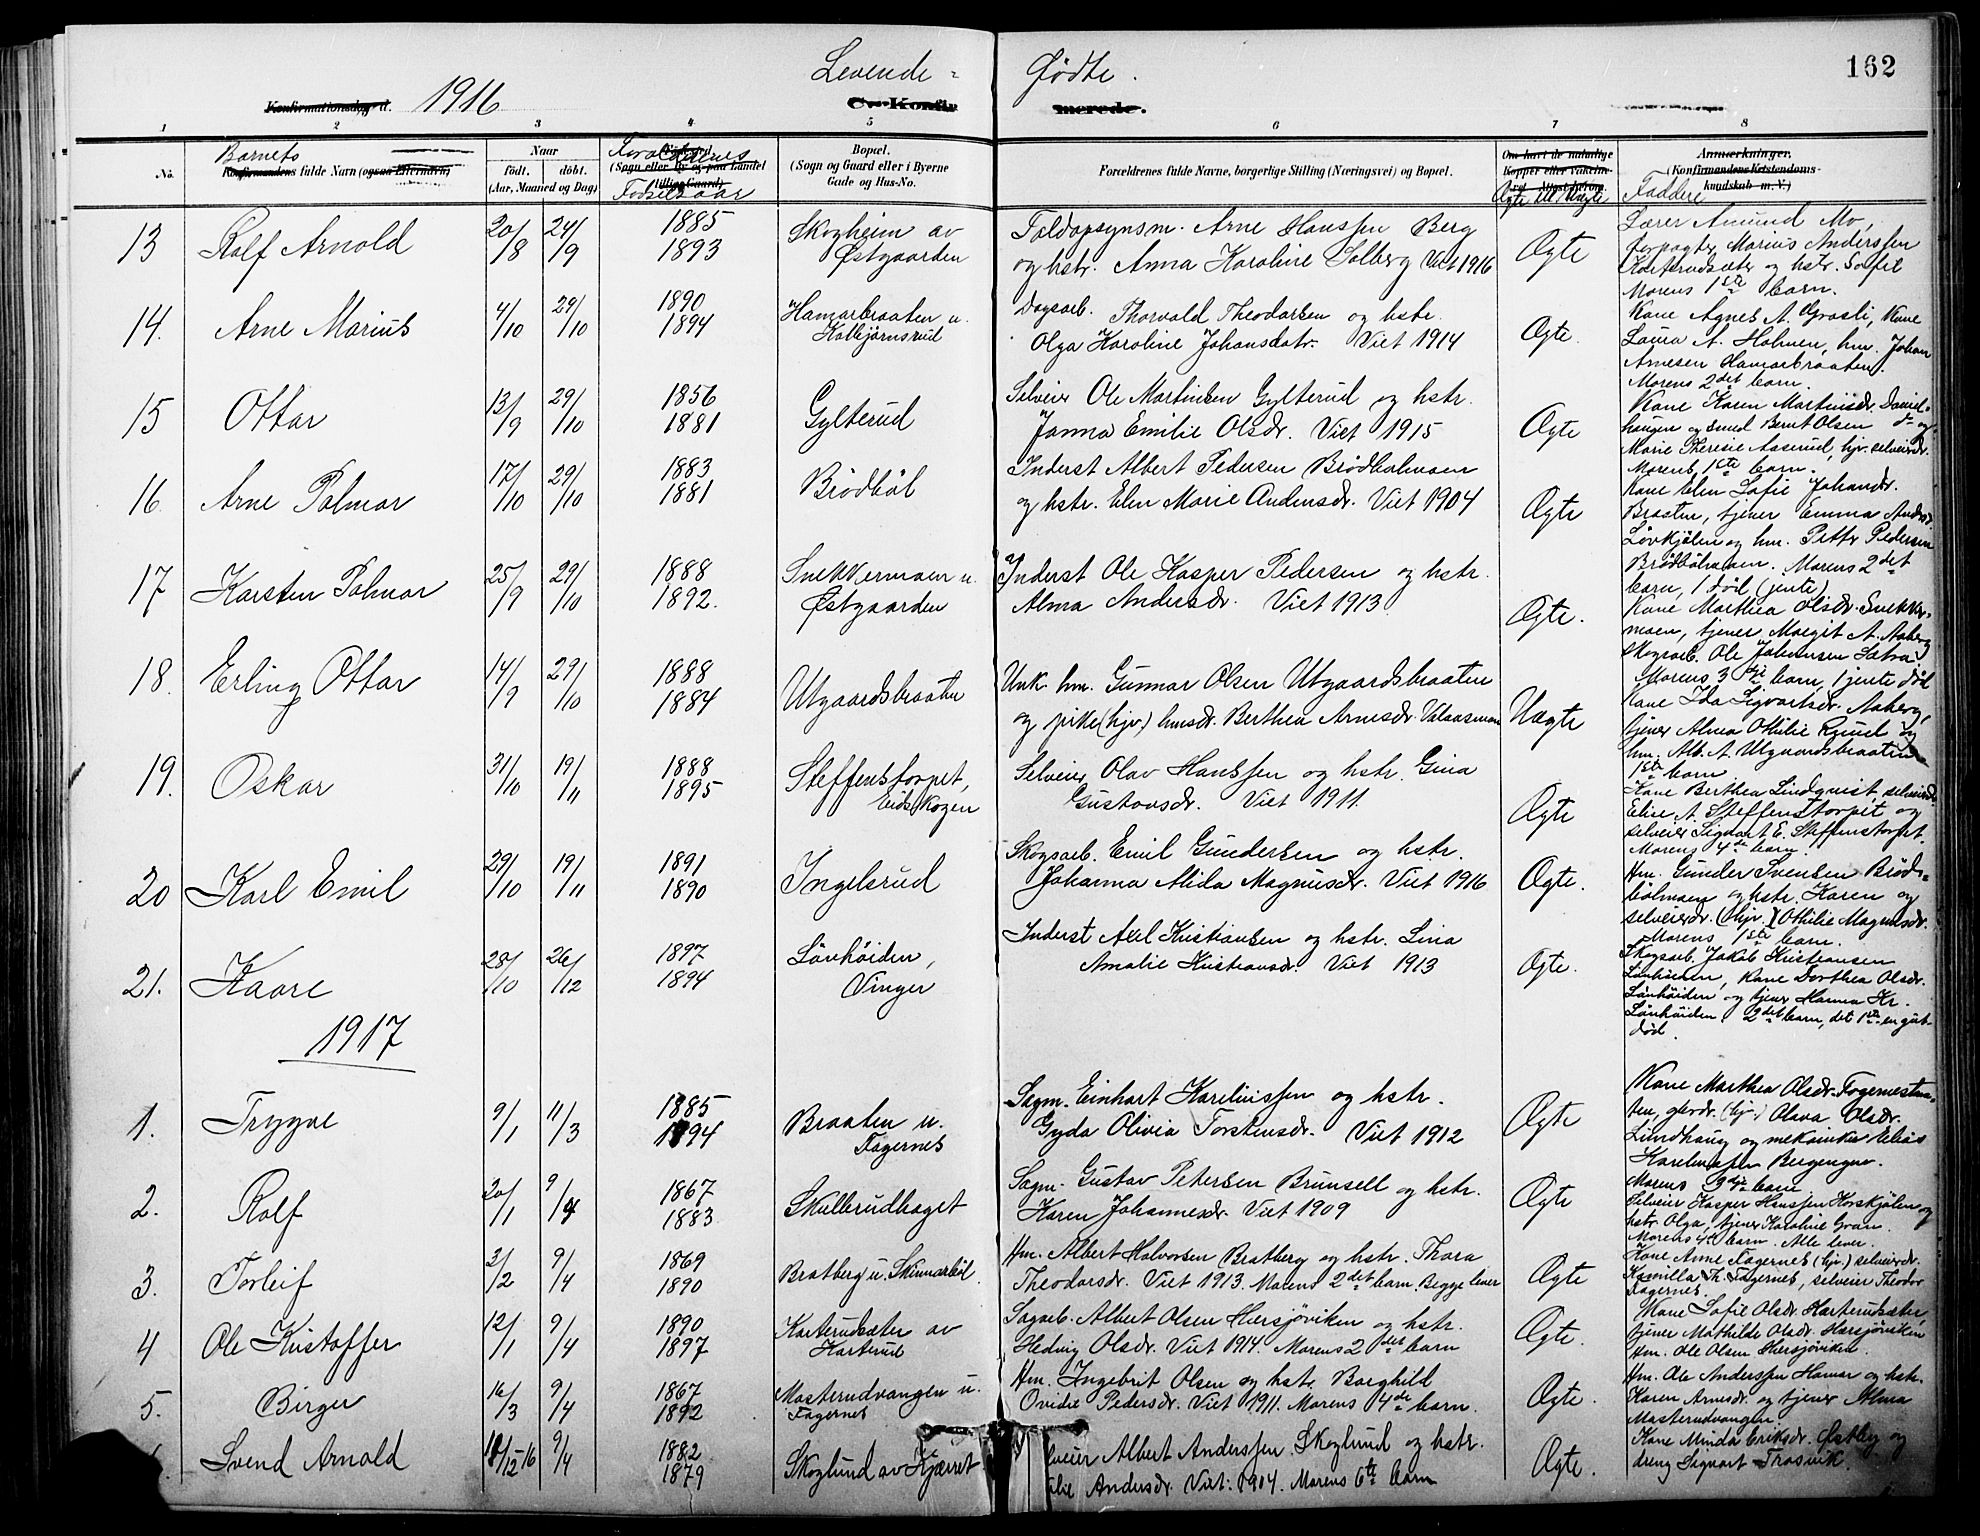 162
Levende- Fødte.
Konfirmationsdag d. 1916
Cve Konfir merede.
1 2 3 4 5 6 7 8
No.
Barnets
Konfirmandens fulde Navn (ogsaa Efternavn)
Naar
født. døbt.
(Aar, Maaned og Dag)
Forældrenes
(Sogn eller By og paa Landet
tillige Gaard)
Fødselsaar
Bopæl.
(Sogn og Gaard eller i Byerne
Gade og Hus-No.
Forældrenes fulde Navne, borgerlige Stilling (Næringsvei) og Bopæl.
Om havt de naturlige
Kopper eller vakcin-
Ægte ell. Uægte
Anmærkninger.
(Konfirmandens Kristendoms-
kundskab m. V.)
Faddere
13 Rolf Arnold 20/8 24/9 1885 1893 Skogheim av Østgaarden
Toldopsynsm. Arne Hanssen Berg
og hstr. Anna Karoline Solberg Viet 1916
Ægte
Lærer Amund Mo,
forpagter Marius Anderssen
Karterudsæter og hstr. Sofie
Morens 1ste barn.
14. Arne Marius 4/10 29/10 1890 1894 Hamarbraaten u. Kolbjørnsrud
Dagsarb. Thorvald Theodorsen og hstr.
Olga Karoline Johansdatr. Viet 1914
Ægte.
Kone Agnes A. Grasli, Kone
Laura A. Holmen, hm. Johan
Arnesen Hamarbraaten.
Morens 2det barn.
15 Ottar 13/9 29/10 1856 1881 Gylterud
Selveier Ole Martinsen Gylterud og hstr.
Janna Emilie Olsdr. Viet 1915
Ægte
Kone Karen Martinsdr. Daniel-
haugen og smed Bernt Olsen do og
Marie Therese Aaserud, hjv. selveierdr.
Morens 1ste barn.
16 Arne Palmar 17/10 29/10 1883 1881 Brødbøl
Inderst Albert Pedersen Brødbølmoen
og hstr. Elen Marie Andersdr. Viet 1904
Ægte
Kone Elen Sofie Johansdr.
Braaten, tjener Emma Andrsd.
Løvkjølen og hm. Petter Pedersen
Brødbølmoen. Morens 2det
barn, 1 død (jente)
17 Karsten Palmar 25/9 29/10 1888 1892. Snekkermoen u. Østgaarden
Inderst Ole Kasper Pedersen og hstr.
Alma Andersdr. Viet 1913
Ægte.
Kone Marthea Olsdr. Snekker-
moen, tjener Margit A. Aaberg
skogsarb. Ole Johansen Sætra
Morens 3die barn, 1 jente død
18. Erling Ottar 14/9 29/10 1888 1884 Utgaardsbraaten
Unk. hm. Gunnar Olsen Utgaardsbraaten
og pike (hjv.) hmsdr. Berthea Arnesdr. Valaasmoen
Uægte
Kone Ida Sigvartsdr. Aaberg,
tjener Alma Othilie Ruud og
hm. Alb. A. Utgaardsbraaten
1ste barn
19. Oskar 31/10 19/11 1888 1895 Steffenstorpet, Eidskogen
Selveier Olav Hanssen og hstr. Gina
Gustavsdr. Viet 1911.
Ægte
Kone Berthea Lindqvist, selveierdr.
Elise A. Steffenstorpet og
selveier Sigvart E. Steffenstorpet.
Morens 4de barn.
20 Karl Emil 29/10 19/11 1891 1890 Ingelsrud
Skogsarb. Emil Gundersen og hstr.
Johanna Alida Magnusdr. Viet 1916
Ægte.
Hm. Gunder Svensen Brød-
bølmoen og hstr. Karen og
selveierdr. (hjv.) Othilie Magnusdr.
Morens 1ste barn.
21. Kaare 28/10 26/12 1897 1894 Lönhöiden, Vinger
Inderst Axel Kristiansen og hstr. Lina
Amalie Kristiansdr. Viet 1913
Ægte.
Skogsarb. Jakob Kristiansen
Lönhöiden, Kone Dorthea Olsdr.
Lönhöiden og tjener Hanna Kr.
Lönhöiden. 2det barn, det 1ste en gut-
død.
1917
1. Trygve 9/1 11/3 1885 1894 Braaten u. Fagernes
Sagm. Einhart Kareliussen og hstr.
Gyda Olivia Torstensdr. Viet 1912
Ægte
Kone Marthea Olsdr. Fagernestua-
ten, grdr. (hjv.) Olava Olsdr.
Lundhaug og mekaniker Elias
Kareliussen Bergengen.
Morens barn
2. Rolf 20/1 9/4 1867 1883 Skullerudhaget
Sagm. Gustav Petersen Brunsell og hstr.
Karen Johannesdr. Viet 1909
Ægte
Selveier Kasper Hanssen Korskjølen og
hstr. Olga, tjener Karoline Gran.
Morens 4de barn. Alle lever.
3. Torleif 2/2 9/4 1869 1890 Bratberg u. Skinnarbøl.
Hm. Albert Halvorsen Bratberg og hstr. Thora
Theodorsdr. Viet 1913. Morens 2det barn. Begge lever
Ægte
Kone Anne Fagernes (hjv.) selveierdr.
Kamilla Th. Fagernes, selveier Theodor
Fagernes.
4 Ole Kristoffer 12/1 9/4 1890 1897 Karterudsæter av Karterud
Sagarb. Albert Olsen Hærsjøviken og hstr.
Hedvig Olsdr. Viet 1914. Morens 2det barn
Ægte.
Kone Sofie Olsdr. Karterudsæter,
tjener Mathilde Olsdr. Hærsjøviken
Hm. Ole Olsen Hærsjøviken.
5. Birger 16/3 9/4 1867 1892 Masterudvangen u. Fagernes
Hm. Ingebrit Olsen og hstr. Borghild
Ovidie Pedersdr. Viet 1911. Morens 4de barn.
Ægte.
Hm. Ole Anderssen Hamar og hstr.
Karen Arnesdr. og tjener Alma
Masterudvangen.
Svend Arnold 18/12-16 9/4 1882 1879 Skoglund av Kjærret
lveier Albert Anderssen Skoglund og hstr.
lie Andersdr. Viet: 1904. Morens 6te barn
Ægte.
Kone Minda Eriksdr. Østby og
dreng Sigvart Trosvik.